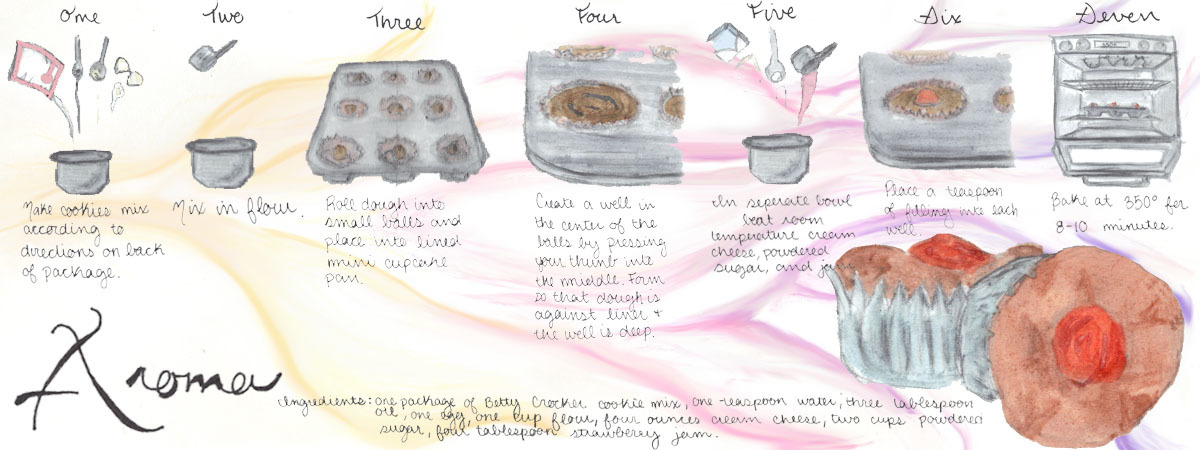 One
Make cookies mix
according to
directions on back
of package.
Two
Mix in flour.
Three
Roll dough into
small balls and
place into lined
mini cupcake
pan.
Four
Create a well in
the center of the
balls by pressing
your thumb into
the middle. Form
so that dough is
against liner +
the well is deep.
Five
In seperate bowl
beat room
temperature cream
cheese, powdered
sugar, and jam.
Six
Place a teaspoon
of filling into each
well.
Seven
Bake at 350° for
8-10 minutes.
Aroma
Ingredients: one package of Betty Crocker cookie mix, one teaspoon water, three tablespoon
oil, one egg, one cup flour, four ounces cream cheese, two cups powdered
sugar, four tablespoon strawberry jam.